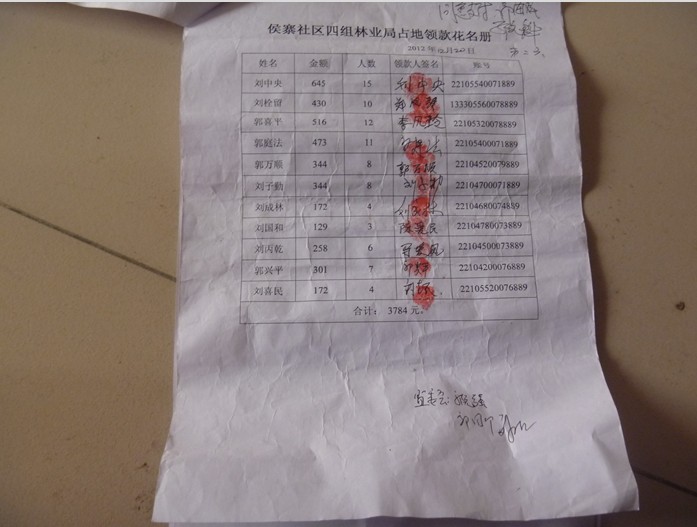 同意支付
侯寨社区四组林业局占地领款花名册
2012年12月20日
姓名 金额 人数 领款人签名 账号
刘中央 645 15 刘中央 22105540071889
刘栓留 430 10 133305560078889
郭喜平 516 12 22105320078889
郭庭法 473 11 22105400071889
郭万顺 344 8 郭万顺 22104520079889
刘子勤 344 8 刘子勤 22104700071889
刘成林 172 4 刘成林 22104680074889
刘国和 129 3 22104780073889
刘丙乾 258 6 22104500073889
郭兴平 301 7 22104200076889
刘喜民 172 4 22105520076889
合计: 3784 元。